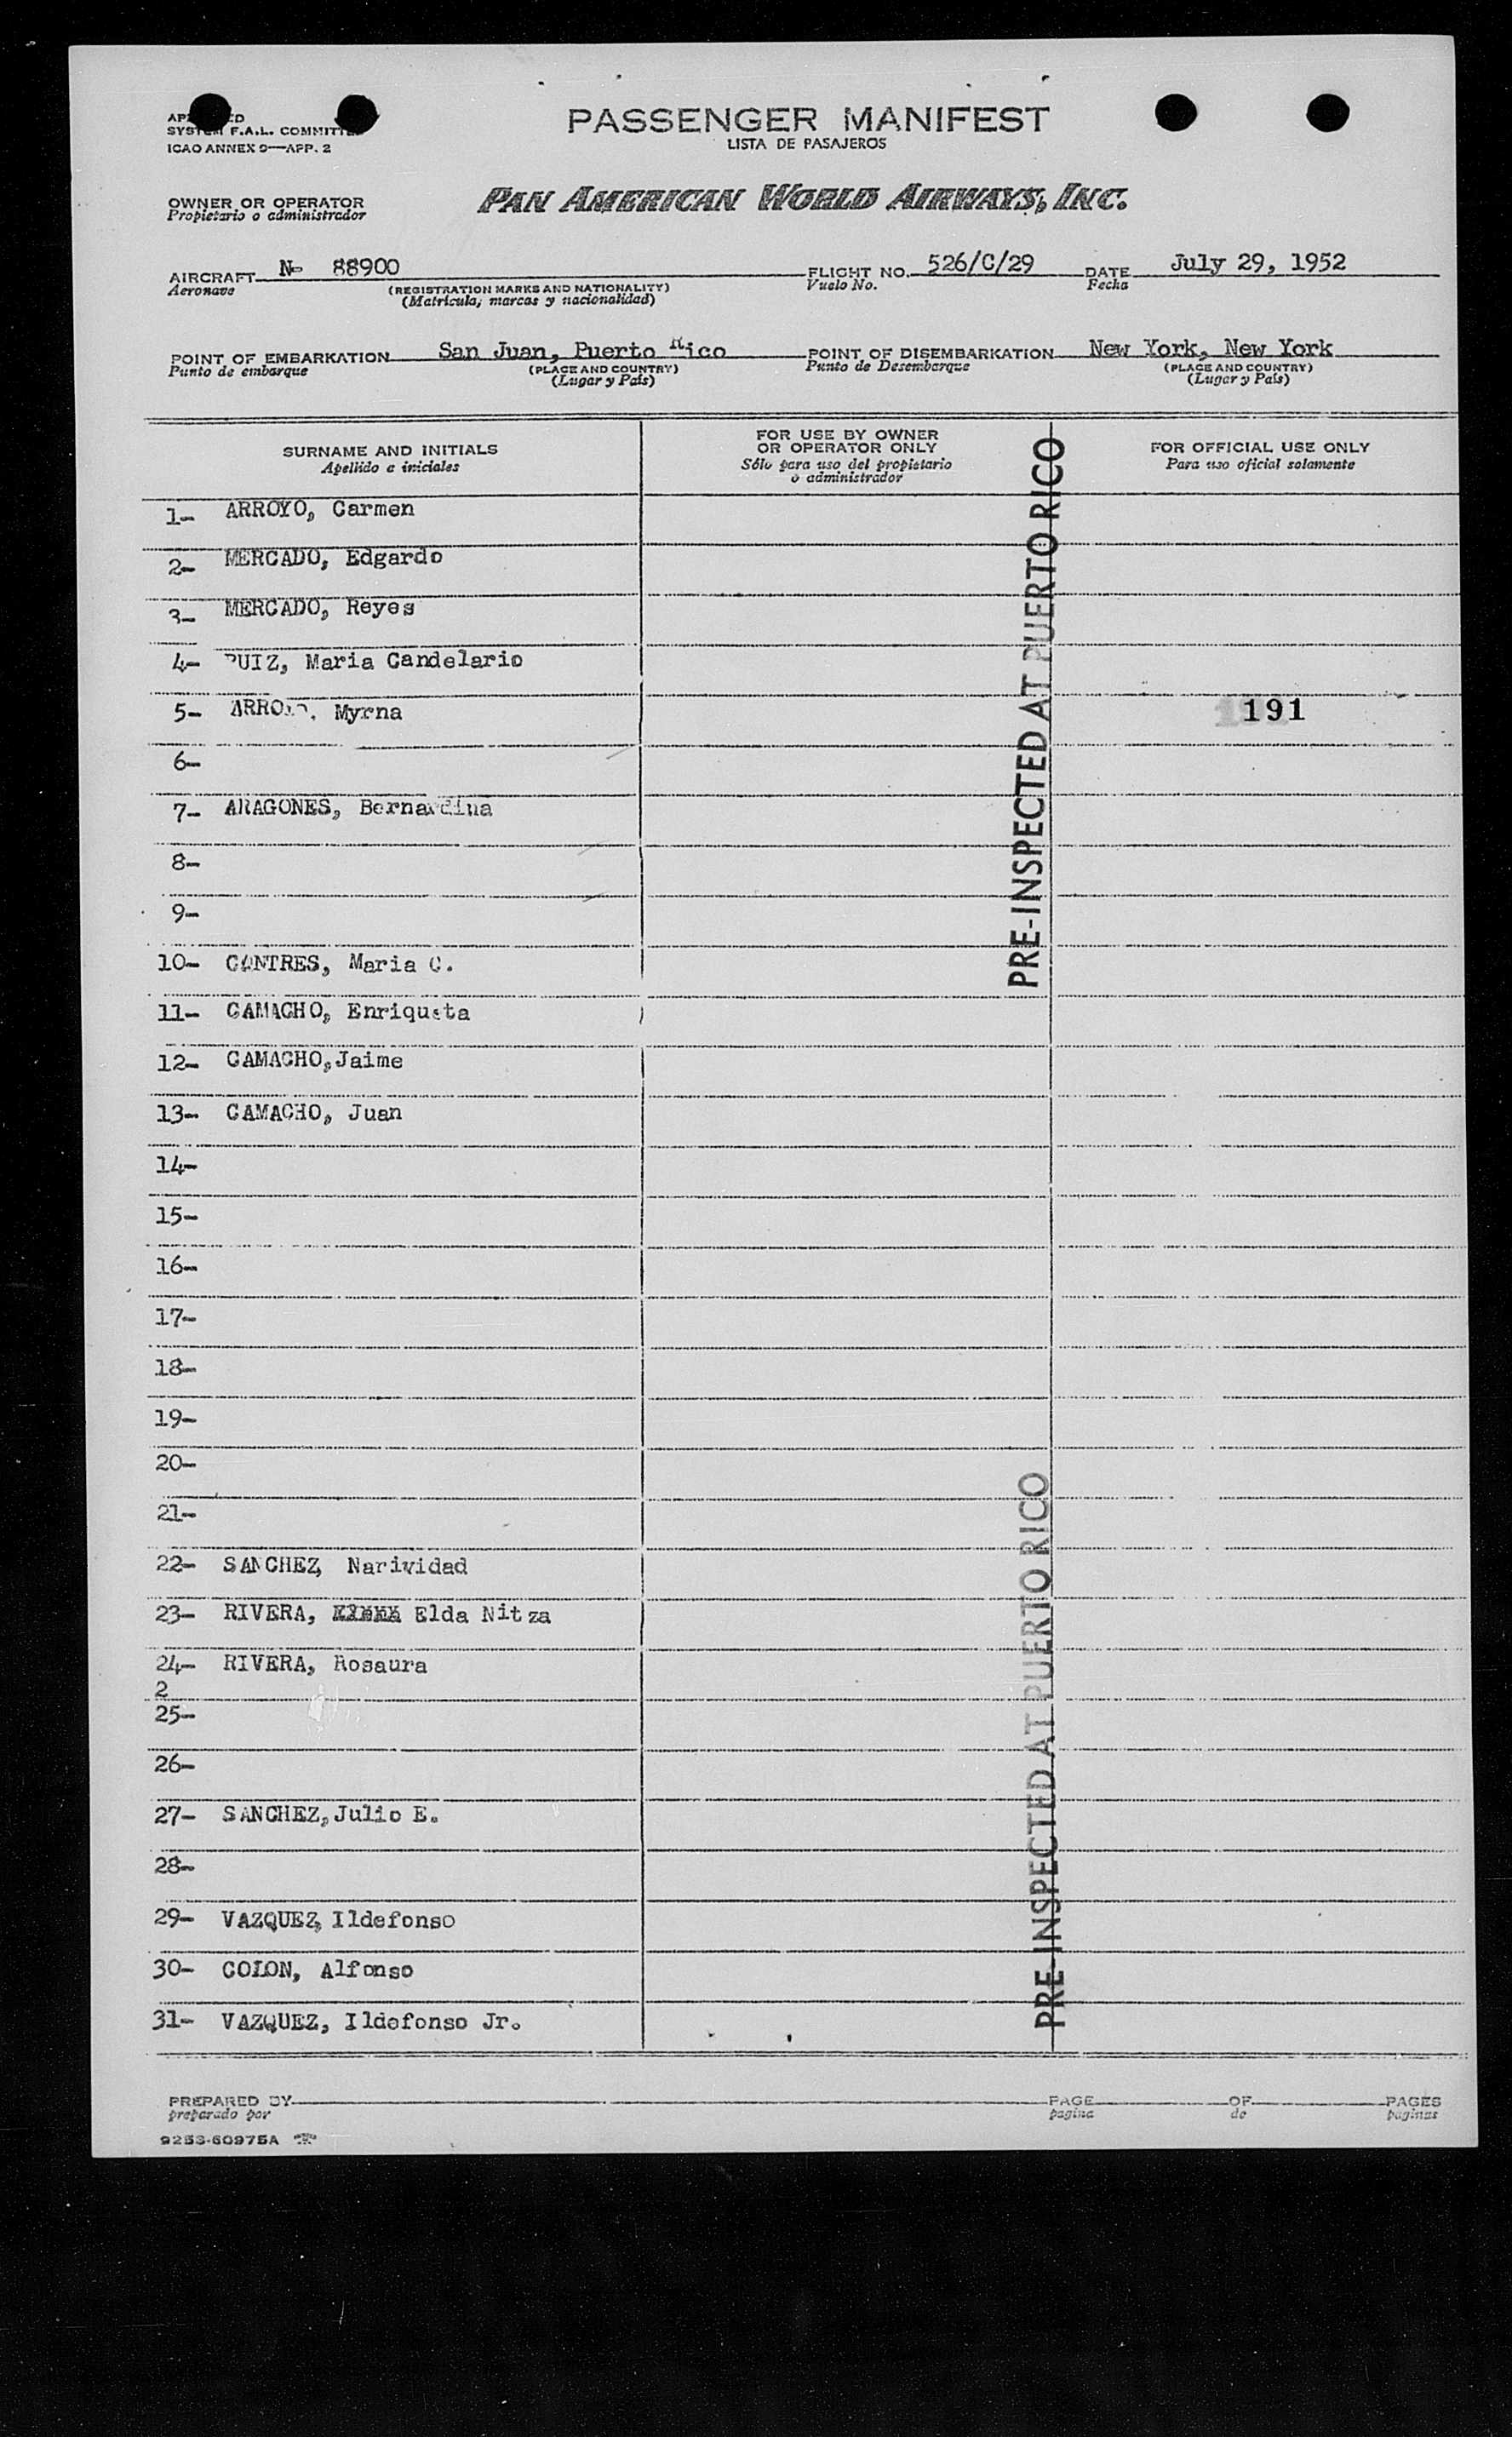 PASSENGER MANIFEST
LISTA DE PASAJEROS
SYSTEM F.A.L. COMMITTEE
ICAO ANNEX 9—APP. 2
OWNER OR OPERATOR
Propietario o administrador
PAN AMERICAN WORLD AIRWAYS, INC.
AIRCRAFT N- 88900 FLIGHT NO. 526/C/29 DATE July 29, 1952
Aeronave (REGISTRATION MARKS AND NATIONALITY) Vuelo No. Fecha
(Matrícula, marcas y nacionalidad)
POINT OF EMBARKATION San Juan, Puerto Rico POINT OF DISEMBARKATION New York, New York
Punto de embarque (PLACE AND COUNTRY) Punto de Desembarque (PLACE AND COUNTRY)
(Lugar y País) (Lugar y País)
SURNAME AND INITIALS
Apellido e iniciales
FOR USE BY OWNER
OR OPERATOR ONLY
Sólo para uso del propietario
o administrador
FOR OFFICIAL USE ONLY
Para uso oficial solamente
1- ARROYO, Carmen
2- MERCADO, Edgardo
3- MERCADO, Reyes
4- RUIZ, Maria Candelario
5- ARROYO, Myrna 191
6-
7- ARAGONES, Bernardina
8-
9-
10- CONTRES, Maria C.
11- CAMACHO, Enriqueta
12- CAMACHO, Jaime
13- CAMACHO, Juan
14-
15-
16-
17-
18-
19-
20-
21-
22- SANCHEZ, Narividad
23- RIVERA, Elda Nitza
24- RIVERA, Rosaura
2
25-
26-
27- SANCHEZ, Julio E.
28-
29- VAZQUEZ, Ildefonso
30- COLON, Alfonso
31- VAZQUEZ, Ildefonso Jr.
PRE-INSPECTED AT PUERTO RICO
PRE-INSPECTED AT PUERTO RICO
PREPARED BY PAGE OF PAGES
preparado por pagina de paginas
9253-60975A